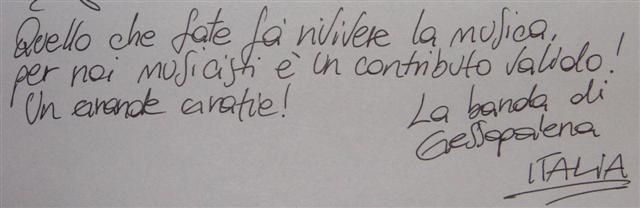 Quello che fate fa rivivere la musica,
per noi musicisti è un contributo valido!
Un grande grazie!
La banda di
Gessopalena
ITALIA